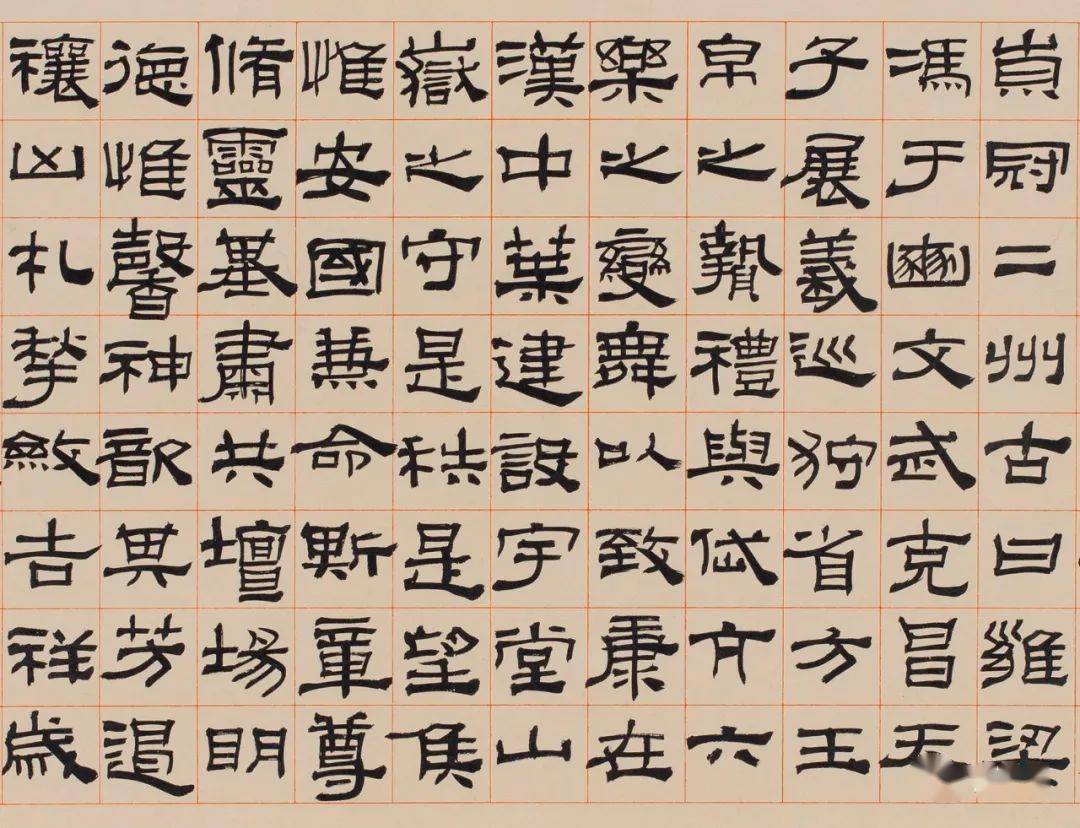 崇冠二州古曰雍梁
馮于豳文武克昌天
子展義巡狩省方玉
帛之贄禮與岱亢六
樂之變舞以致康在
漢中葉建設宇堂山
嶽之守是秩是望侯
惟安國兼命斯章尊
脩靈基肅共壇場明
德惟馨神歆其芳遏
禳凶札揫斂吉祥歲